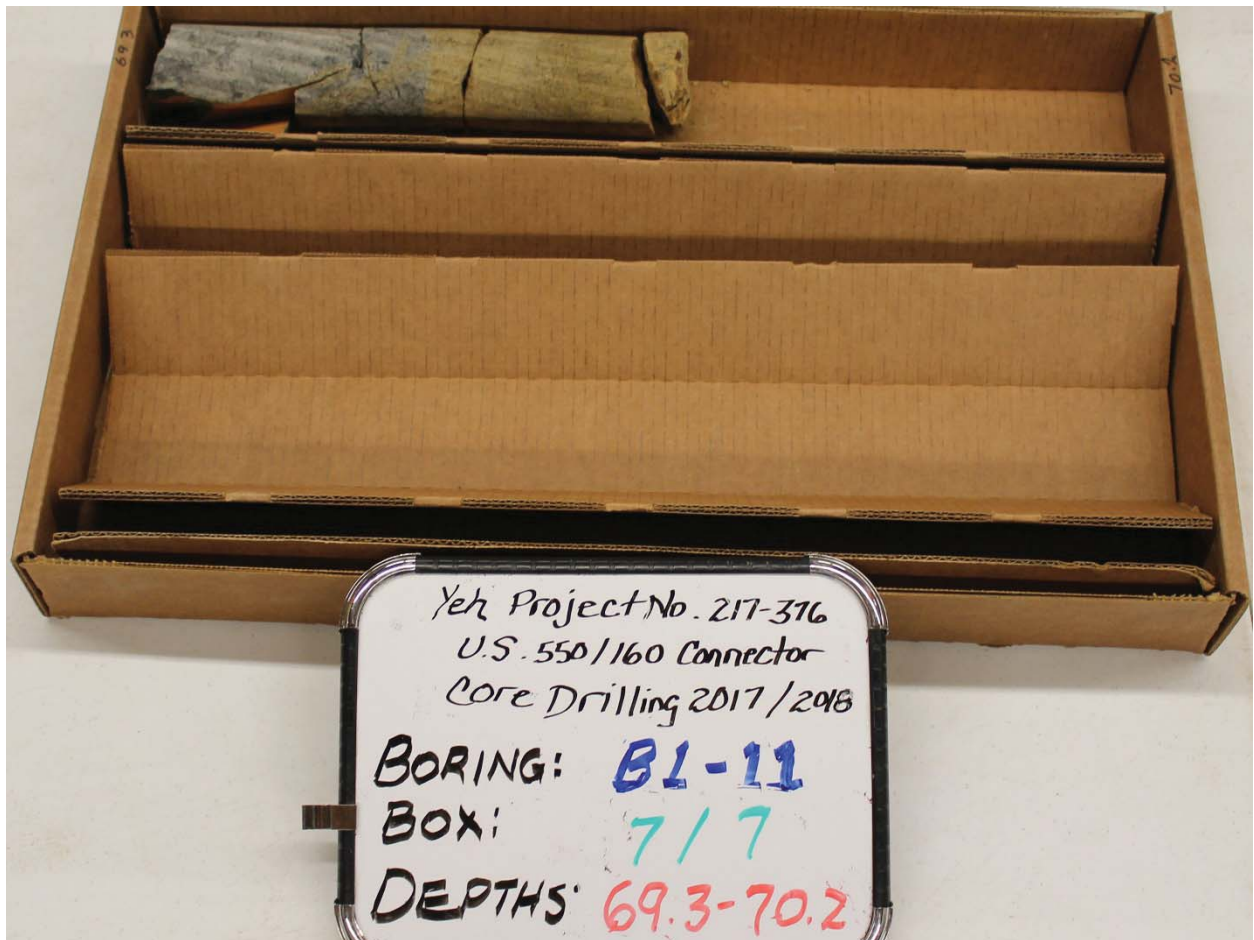 69.3
70.2
Yeh Project No. 217-376
U.S. 550/160 Connector
Core Drilling 2017/2018
BORING: B1-11
BOX: 7/7
DEPTHS: 69.3-70.2